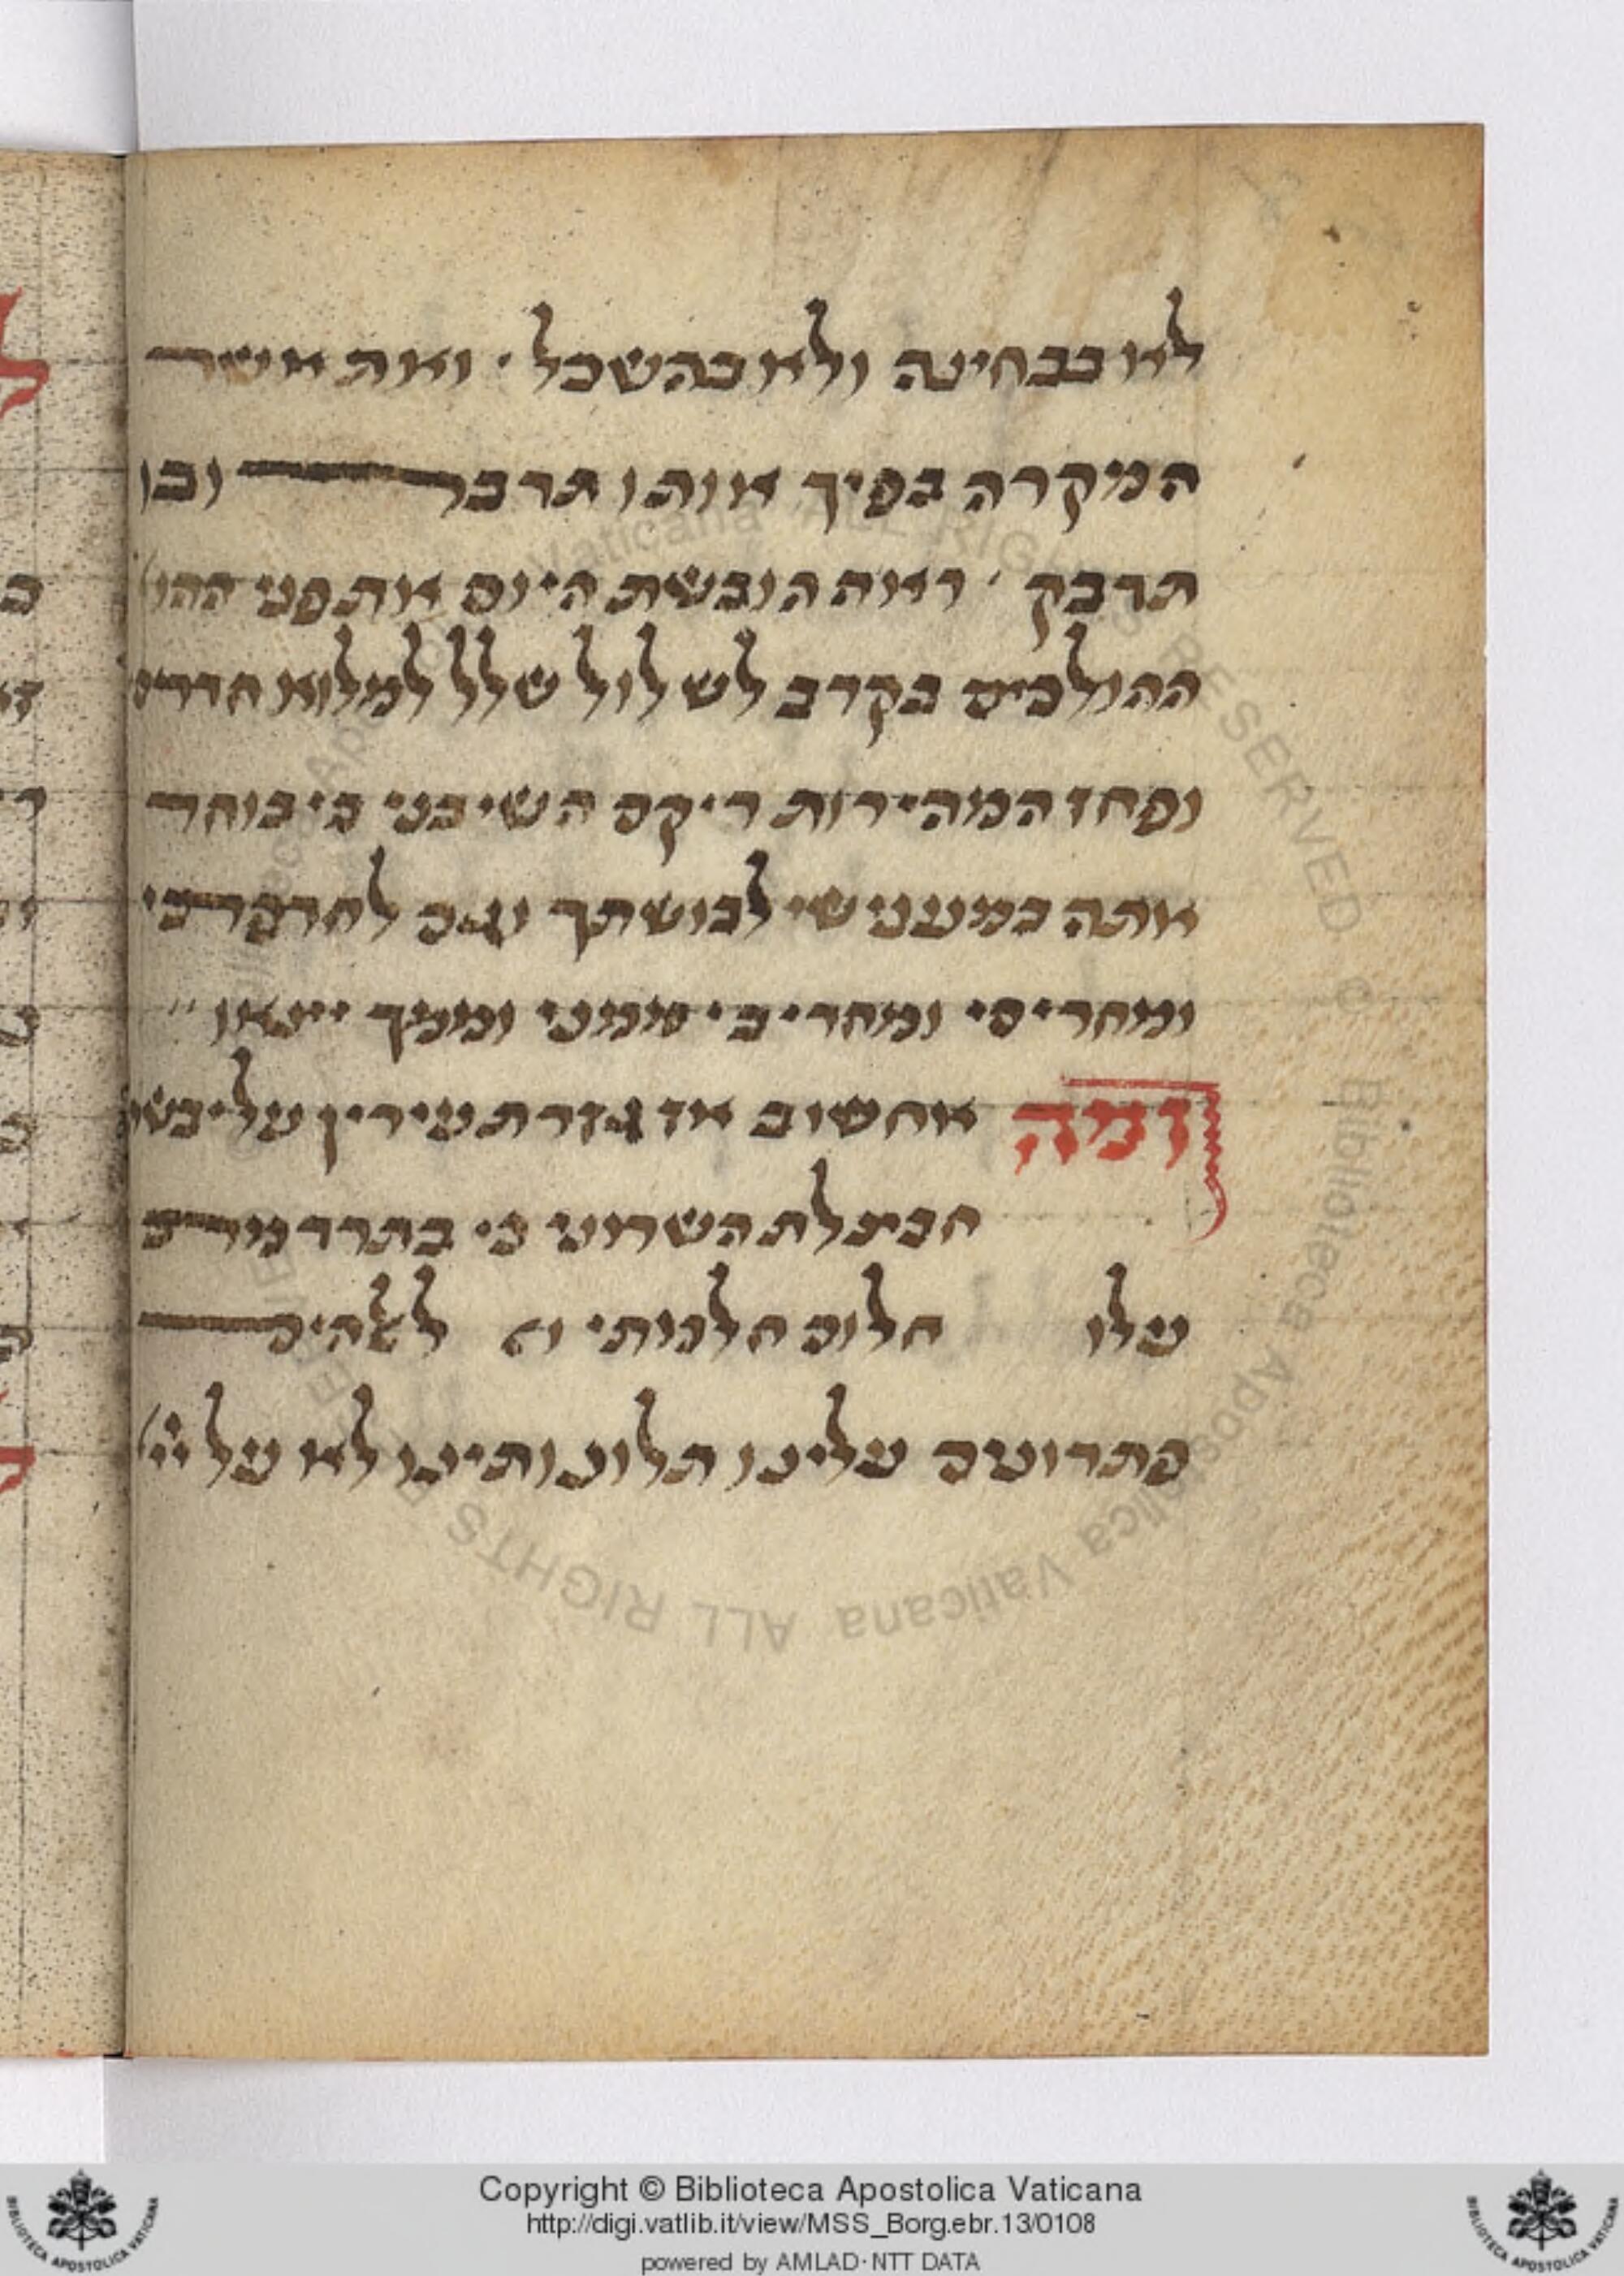 לא בבחינה ולא בהשכל · ואת אשר
המקרה בפיך אותו תדבר ובו
תדבק · ראה הובשת היום את פני
ההולכים בקרב לשלול שלל למלוא חדרים
ופחז המהירות ריקם השיבני כי בוחר
אתה במעשי לבושתך וגם לחרפתי
ומחריפי ומחריבי ממני וממך יצאו
ומה אחשוב אז גזרת עירין על
חבצלת השרון כי בתרדמה
עלו חלום חלמתי לאלהים
פתרונם עלינו תלונותינו לא על ייי
Copyright © Biblioteca Apostolica Vaticana
http://digi.vatlib.it/view/MSS_Borg.ebr.13/0108
powered by AMLAD·NTT DATA